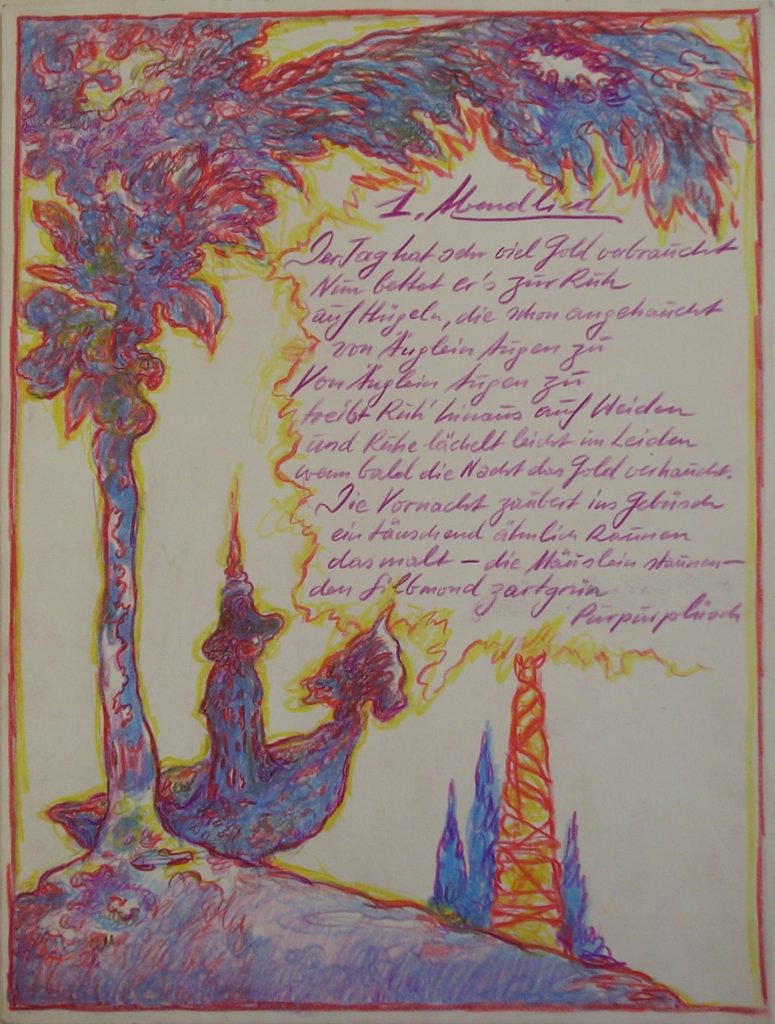 1. Abendlied
Der Tag hat sehr viel Gold verbraucht
Nun bettet er's zur Ruh
auf Hügeln, die schon angehaucht
von Äuglein Augen zu
Von Äuglein Augen zu
treibt Ruh' hinaus auf Weiden
und Ruhe lächelt leicht im Leiden
wenn bald die Nacht das Gold verhaucht.
Die Vornacht zaubert ins Gebüsch
ein täuschend ähnlich Raunen
das malt – die Mäuslein staunen –
den Silbmond zartgrün
Purpurplüsch